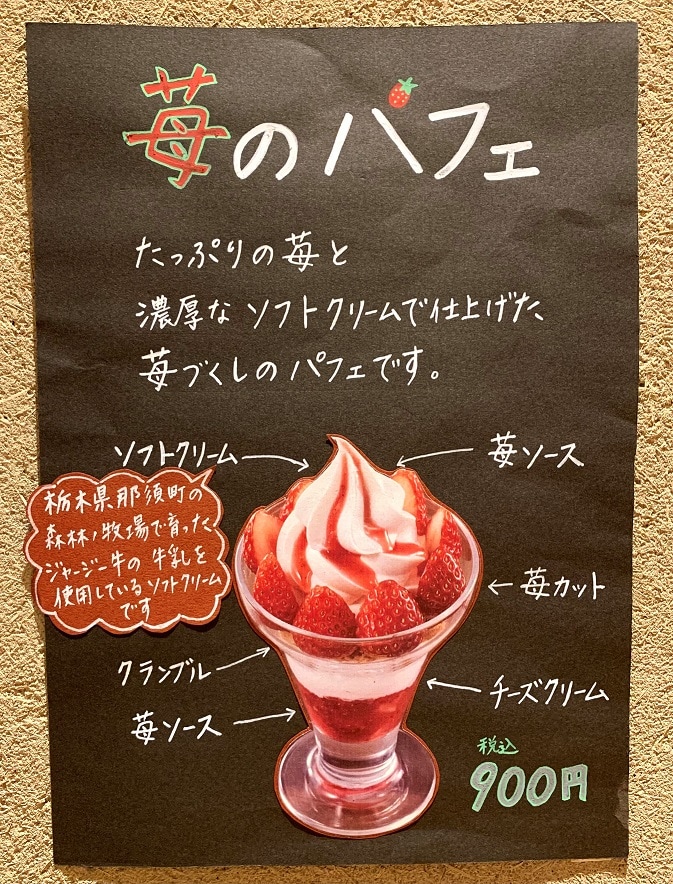 苺のパフェ
たっぷりの苺と
濃厚なソフトクリームで仕上げた、
苺づくしのパフェです。
ソフトクリーム
苺ソース
栃木県那須町の
森林ノ牧場で育った
ジャージー牛の牛乳を
使用しているソフトクリーム
です
苺カット
クランブル
チーズクリーム
苺ソース
税込
900円